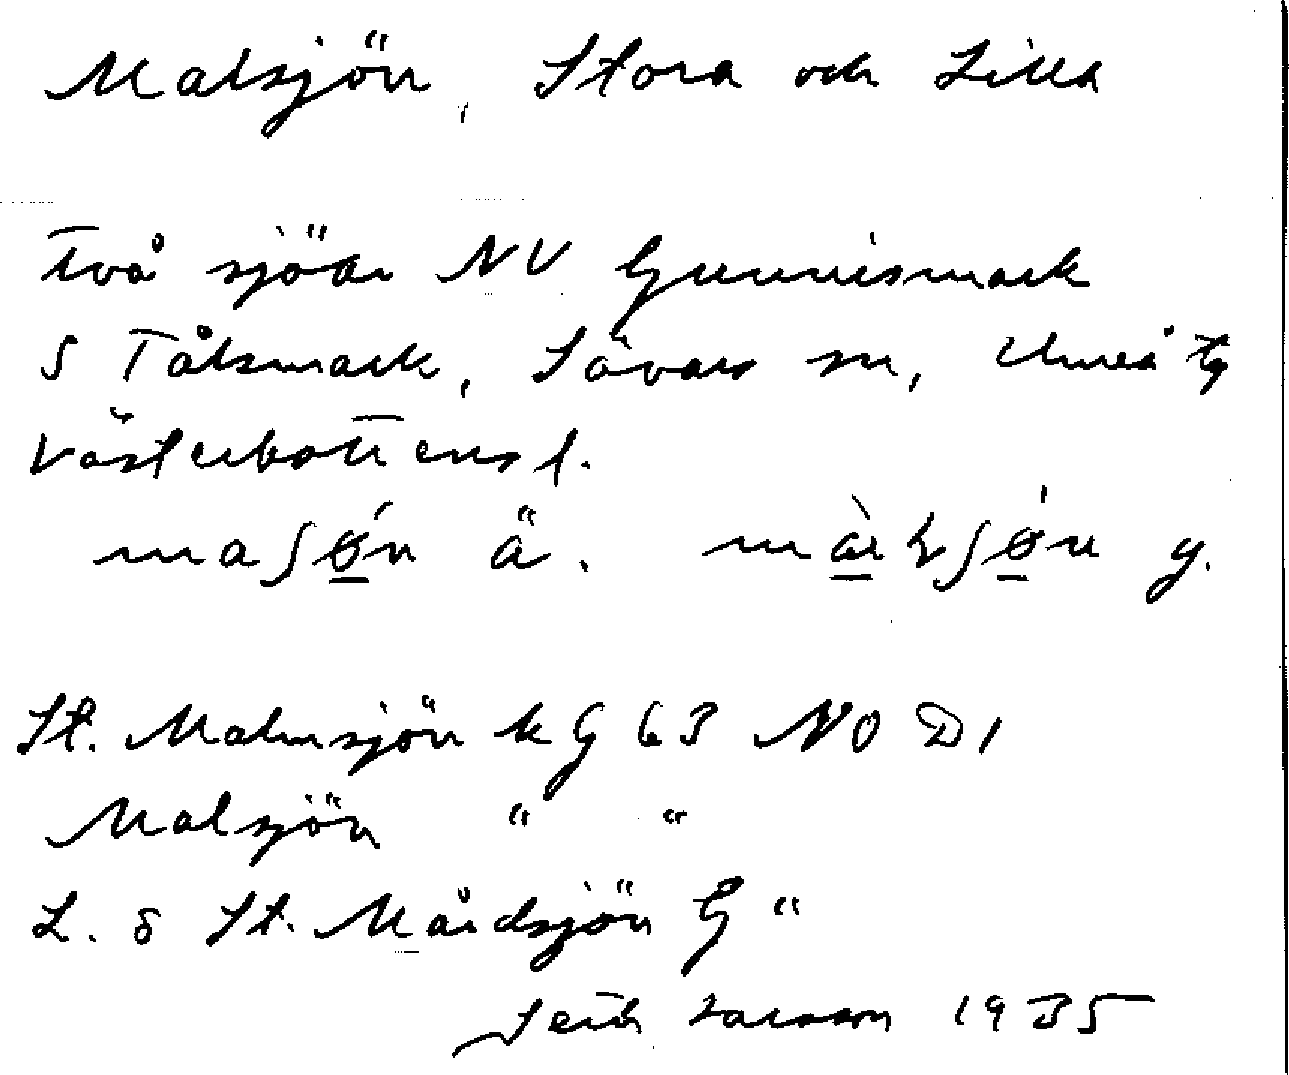 Malsjön, Stora och Lilla
Två sjöar NV Gunnismark
S Tålsmark, Sävars sn, Umeå tg
Västerbottens l.
maʃǿn ä. ʃǿn y.
St. Malmsjön k G 63 NO D1
Malsjön " "
L. o St. Mårdsjön G "
Larsson 1935